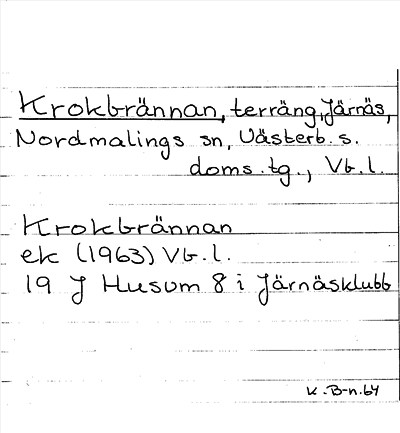 Krokbrännan, terräng, Järnäs,
Nordmalings sn, Västerb. s.
doms.tg., Vb.l.
Krokbrännan
ek (1963) Vb.l.
19 J Husum 8 i Järnäsklubb
K.B-n.64